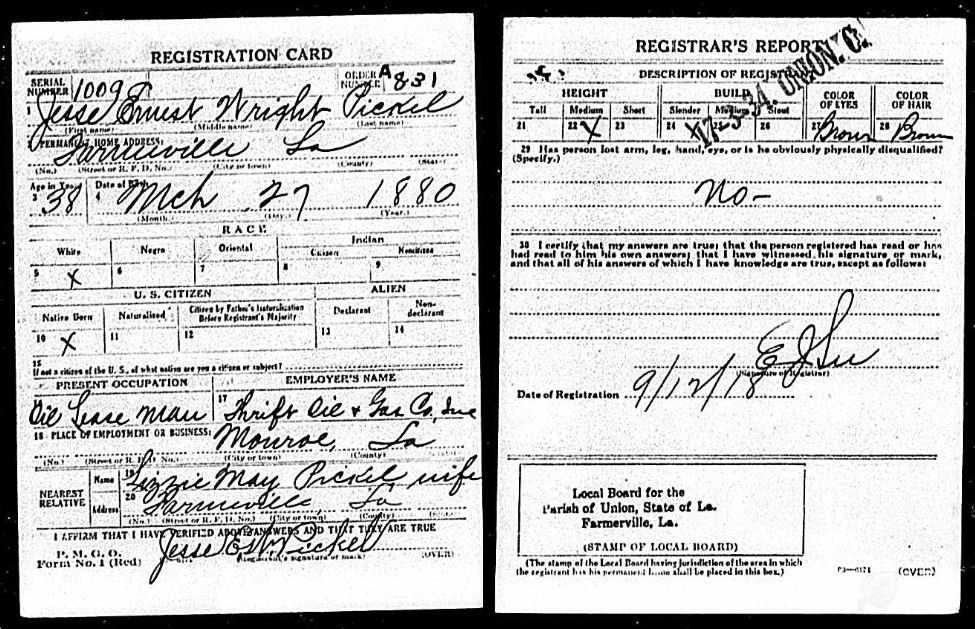 REGISTRATION CARD
SERIAL NUMBER 1009 ORDER NUMBER A 831
Jesse Ernest Wright Pickel
(First name) (Middle name) (Last name)
PERMANENT HOME ADDRESS:
Farmerville La
(No.) (Street or R. F. D. No.) (City or town) (County) (State)
Age in Years Date of Birth
3 38 4 Mch 27 1880
(Month.) (Day.) (Year.)
RACE
White Negro Oriental Indian
Citizen Noncitizen
5 X 6 7 8 9
U. S. CITIZEN ALIEN
Native Born Naturalized Citizen by Father's Naturalization Before Registrant's Majority Declarant Non-declarant
10 X 11 12 13 14
15 If not a citizen of the U. S., of what nation are you a citizen or subject?
PRESENT OCCUPATION EMPLOYER'S NAME
Oil Lease Man 17 Thrift Oil & Gas Co, Inc
18 PLACE OF EMPLOYMENT OR BUSINESS:
Monroe, La
(No.) (Street or R. F. D. No.) (City or town) (County)
NEAREST RELATIVE Name 19 Lizzie May Pickel wife
Address 20 Farmerville, La
(No.) (Street or R. F. D. No.) (City or town) (County)
I AFFIRM THAT I HAVE VERIFIED ABOVE ANSWERS AND THAT THEY ARE TRUE
P. M. G. O.
Form No. 1 (Red) Jesse E W Pickel
(Registrant's signature or mark) (OVER)
REGISTRAR'S REPORT
DESCRIPTION OF REGISTRANT
HEIGHT BUILD COLOR OF EYES COLOR OF HAIR
Tall Medium Short Slender Medium Stout
21 22 X 23 24 X 25 26 27 Brown 28 Brown
29 Has person lost arm, leg, hand, eye, or is he obviously physically disqualified?
(Specify.)
No-
30 I certify that my answers are true; that the person registered has read or has
had read to him his own answers; that I have witnessed his signature or mark,
and that all of his answers of which I have knowledge are true, except as follows:
(Signature of Registrar)
Date of Registration 9/12/18
Local Board for the
Parish of Union, State of La.
Farmerville, La.
(STAMP OF LOCAL BOARD)
(The stamp of the Local Board having jurisdiction of the area in which
the registrant has his permanent home shall be placed in this box.)
(OVER)